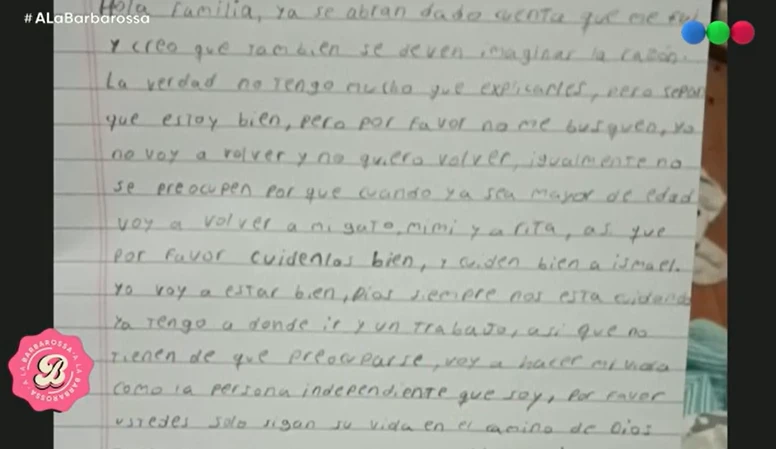 #ALaBarbarossa
Hola familia, ya se abran dado cuenta que me fui
y creo que tambien se deven imaginar la razón.
La verdad no tengo mucho que explicarles, pero sepan
que estoy bien, pero por favor no me busquen, yo
no voy a volver y no quiero volver, igualmente no
se preocupen por que cuando ya sea mayor de edad
voy a volver a mi gato, mimi y a rita, asi que
por favor cuidenlos bien, y cuiden bien a ismael.
Yo voy a estar bien, Dios siempre nos esta cuidando
Ya tengo a donde ir y un trabajo, asi que no
tienen de que preocuparse, voy a hacer mi vida
como la persona independiente que soy, por favor
ustedes solo sigan su vida en el camino de Dios
A LA BARBAROSSA · A LA BARBAROSSA
B